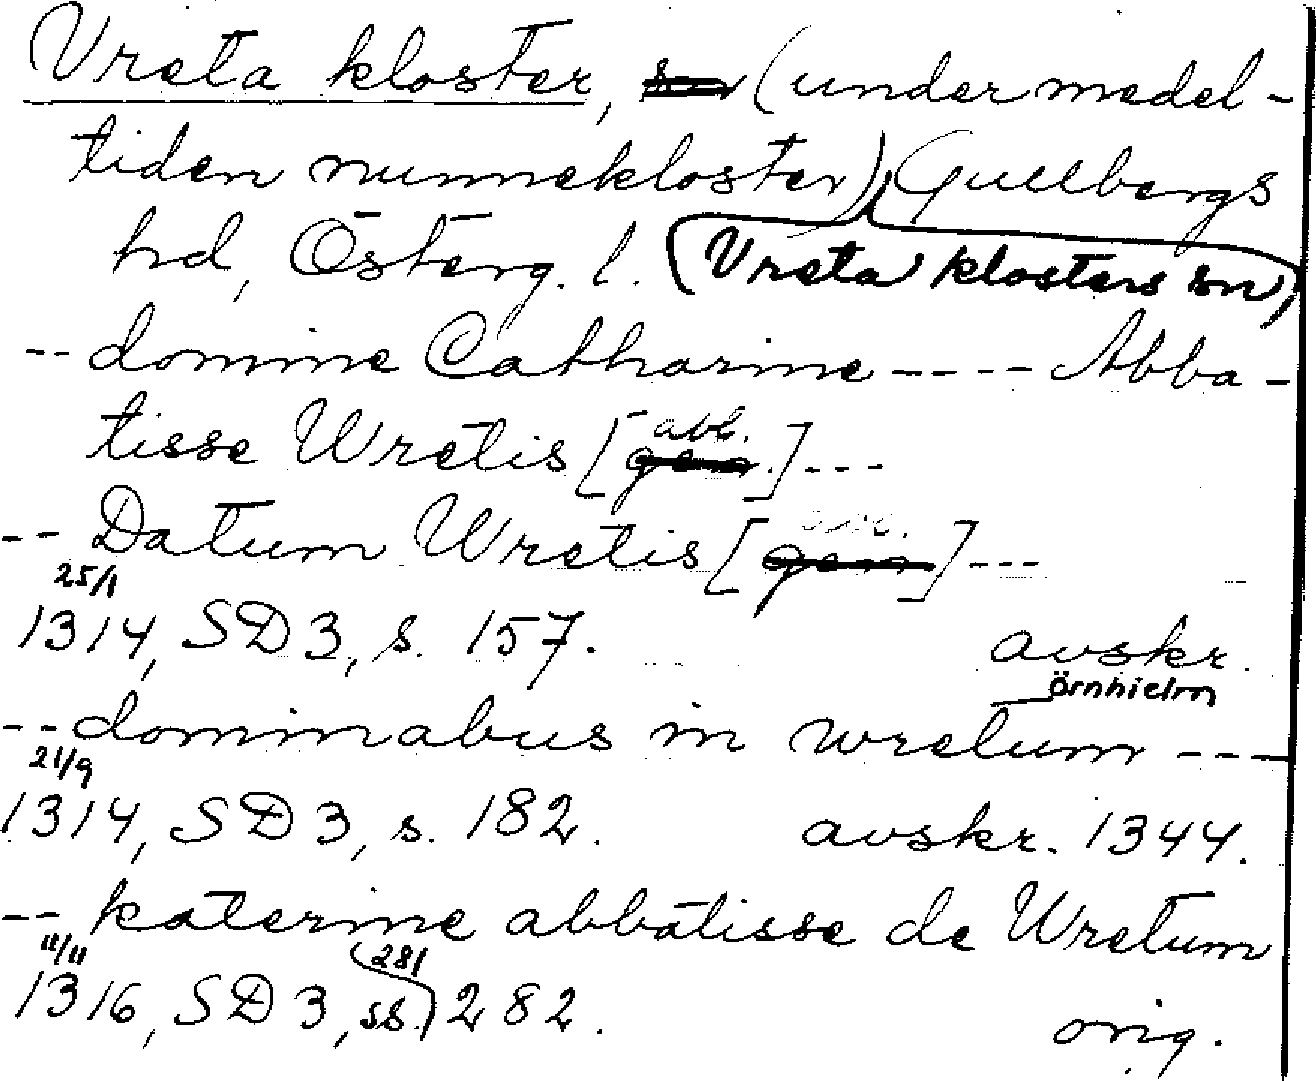 Vreta kloster, sn (under medel-
tiden nunnekloster) Gullbergs
hd, Österg. l. (Vreta klosters sn)
-- domine Catharine ---- Abba-
tisse Wretis [gen abl.] ---
-- Datum Wretis [gen abl.] ---
25/1
1314, SD 3, s. 157. avskr.
Örnhielm
-- dominabus in wretum ---
21/9
1314, SD 3, s. 182. avskr. 1344.
-- katerine abbatisse de Wretum
11/11
1316, SD 3, ss. (281) 282. orig.